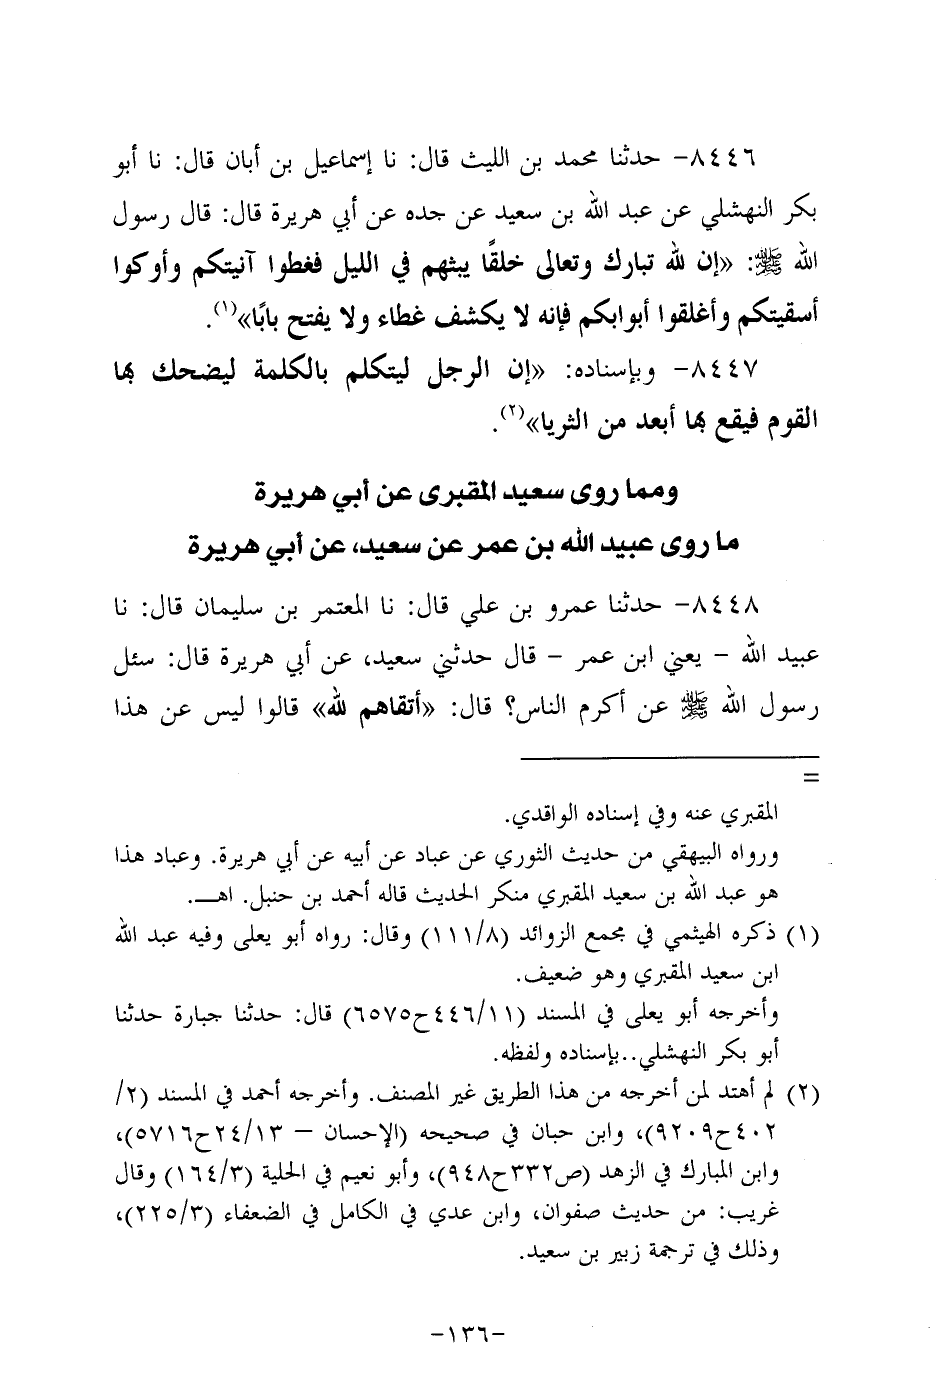 ٨٤٤٦- حدثنا محمد بن الليث قال: نا إسماعيل بن أبان قال: نا أبو
بكر النهشلي عن عبد الله بن سعيد عن جده عن أبي هريرة قال: قال رسول
الله ﷺ: «إن لله تبارك وتعالى خلقًا يبثهم في الليل فغطوا آنيتكم وأوكوا
أسقيتكم وأغلقوا أبوابكم فإنه لا يكشف غطاء ولا يفتح بابًا»(١).
٨٤٤٧- وبإسناده: «إن الرجل ليتكلم بالكلمة ليضحك بها
القوم فيقع بها أبعد من الثريا»(٢).
ومما روى سعيد المقبرى عن أبي هريرة
ما روى عبيد الله بن عمر عن سعيد، عن أبي هريرة
٨٤٤٨- حدثنا عمرو بن علي قال: نا المعتمر بن سليمان قال: نا
عبيد الله - يعني ابن عمر - قال حدثني سعيد، عن أبي هريرة قال: سئل
رسول الله ﷺ عن أكرم الناس؟ قال: «أتقاهم لله» قالوا ليس عن هذا
=
المقبري عنه وفي إسناده الواقدي.
ورواه البيهقي من حديث الثوري عن عباد عن أبيه عن أبي هريرة. وعباد هذا
هو عبد الله بن سعيد المقبري منكر الحديث قاله أحمد بن حنبل. اهـ.
(١) ذكره الهيثمي في مجمع الزوائد (١١١/٨) وقال: رواه أبو يعلى وفيه عبد الله
ابن سعيد المقبري وهو ضعيف.
وأخرجه أبو يعلى في المسند (٤٤٦/١١ح٦٥٧٥) قال: حدثنا جبارة حدثنا
أبو بكر النهشلي..بإسناده ولفظه.
(٢) لم أهتد لمن أخرجه من هذا الطريق غير المصنف. وأخرجه أحمد في المسند (٢/
٤٠٢ح٩٢٠٩)، وابن حبان في صحيحه (الإحسان - ٢٤/١٣ح٥٧١٦)،
وابن المبارك في الزهد (ص٣٣٢ح٩٤٨)، وأبو نعيم في الحلية (١٦٤/٣) وقال
غريب: من حديث صفوان، وابن عدي في الكامل في الضعفاء (٢٢٥/٣)،
وذلك في ترجمة زبير بن سعيد.
-١٣٦-